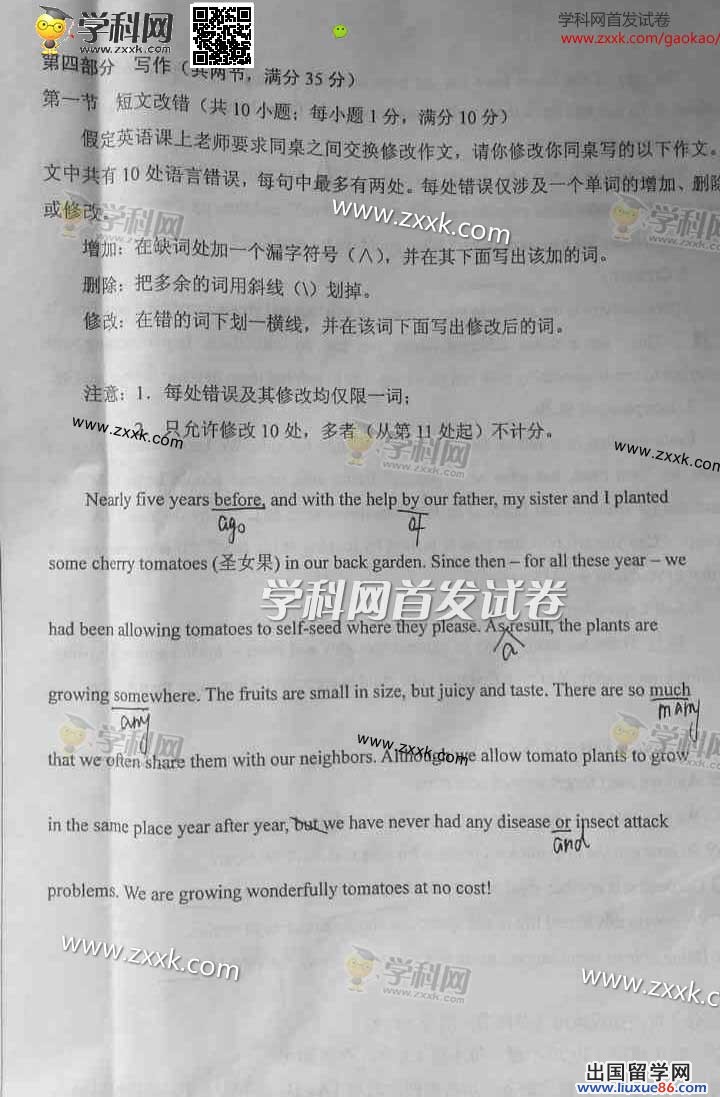 学科网
www.zxxk.com
学科网首发试卷
www.zxxk.com/gaokao/
第四部分 写作（共两节，满分 35 分）
第一节 短文改错（共 10 小题；每小题 1 分，满分 10 分）
假定英语课上老师要求同桌之间交换修改作文，请你修改你同桌写的以下作文。
文中共有 10 处语言错误，每句中最多有两处。每处错误仅涉及一个单词的增加、删除
或修改。
学科网
www.zxxk.com
学科网
www.zxxk.com
增加：在缺词处加一个漏字符号（∧），并在其下面写出该加的词。
删除：把多余的词用斜线（\）划掉。
修改：在错的词下划一横线，并在该词下面写出修改后的词。
注意：1. 每处错误及其修改均仅限一词；
www.zxxk.com
2. 只允许修改 10 处，多者（从第 11 处起）不计分。
学科网
www.zxxk.com
www.zxxk.com
Nearly five years before, and with the help by our father, my sister and I planted
ago of
some cherry tomatoes (圣女果) in our back garden. Since then – for all these year – we
学科网首发试卷
had been allowing tomatoes to self-seed where they please. As result, the plants are
a
growing somewhere. The fruits are small in size, but juicy and taste. There are so much
any many
学科网
www.zxxk.com
www.zxxk.com
学科网
www.zxxk.com
that we often share them with our neighbors. Although we allow tomato plants to grow
in the same place year after year, but we have never had any disease or insect attack
and
problems. We are growing wonderfully tomatoes at no cost!
www.zxxk.com
学科网
www.zxxk.com
www.zxxk.com
出国留学网
www.liuxue86.com